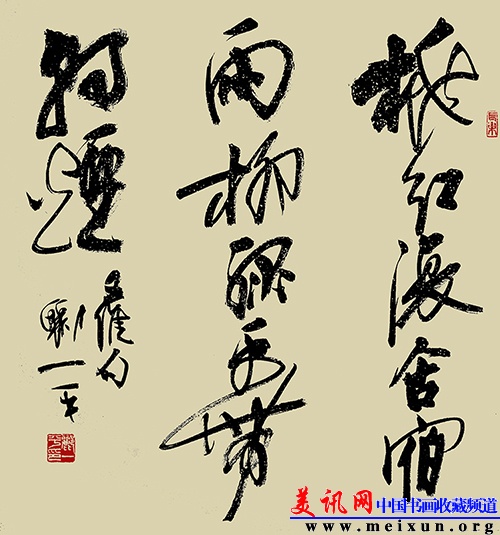 桃红復含宿
雨柳綠更帶
朝煙
王維句
一平
美讯网 中国书画收藏频道
www.meixun.org